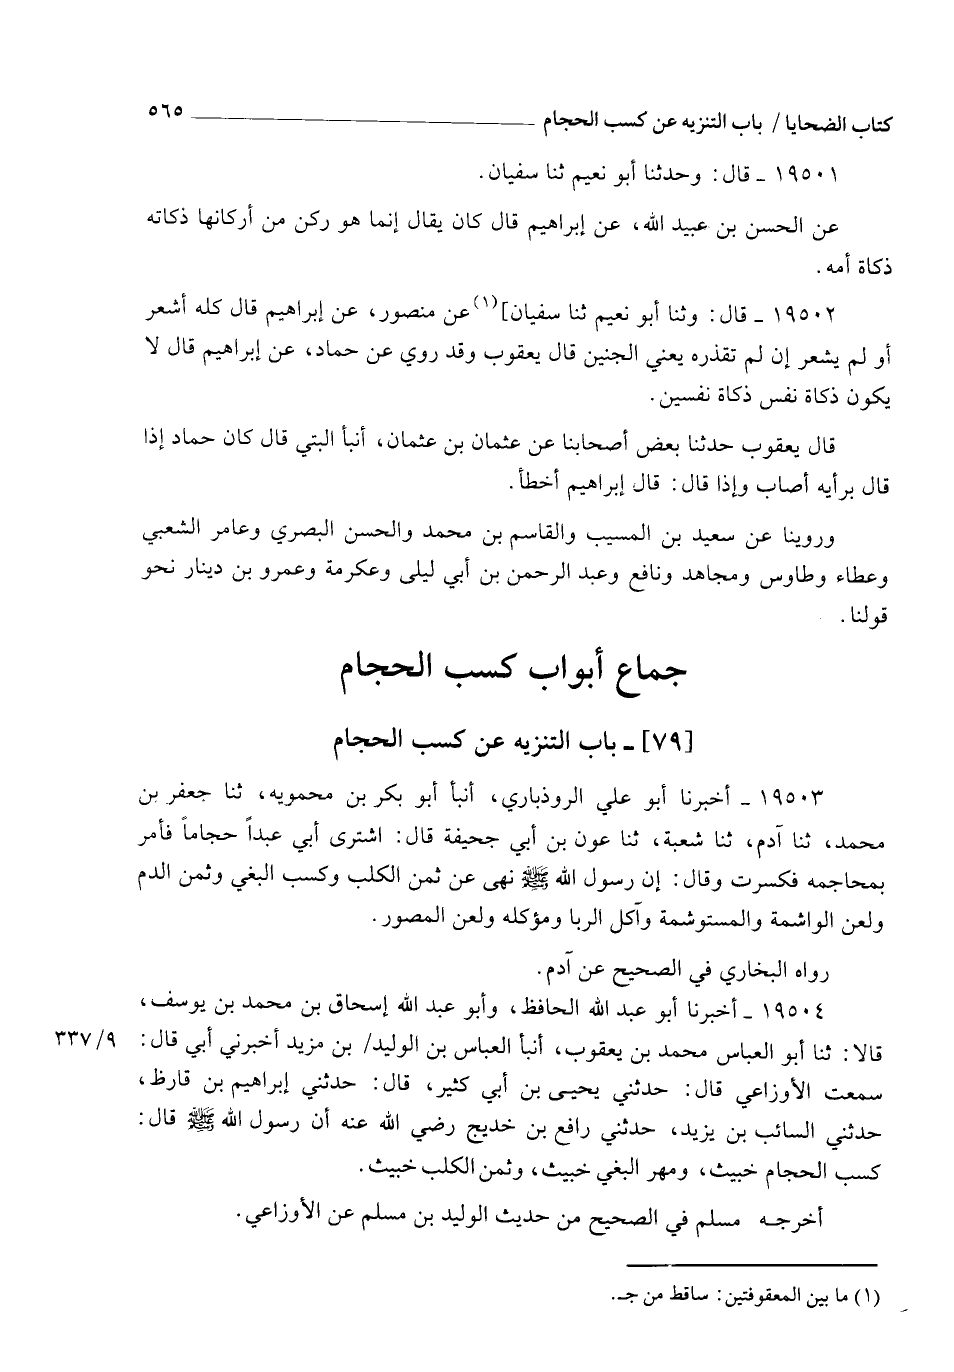 كتاب الضحايا / باب التنزيه عن كسب الحجام ٥٦٥
١٩٥٠١ ـ قال: وحدثنا أبو نعيم ثنا سفيان.
عن الحسن بن عبيد الله، عن إبراهيم قال كان يقال إنما هو ركن من أركانها ذكاته
ذكاة أمه.
١٩٥٠٢ ـ قال: وثنا أبو نعيم ثنا سفيان](١) عن منصور، عن إبراهيم قال كله أشعر
أو لم يشعر إن لم تقذره يعني الجنين قال يعقوب وقد روي عن حماد، عن إبراهيم قال لا
يكون ذكاة نفس ذكاة نفسين.
قال يعقوب حدثنا بعض أصحابنا عن عثمان بن عثمان، أنبأ البتي قال كان حماد إذا
قال برأيه أصاب وإذا قال: قال إبراهيم أخطأ.
وروينا عن سعيد بن المسيب والقاسم بن محمد والحسن البصري وعامر الشعبي
وعطاء وطاوس ومجاهد ونافع وعبد الرحمن بن أبي ليلى وعكرمة وعمرو بن دينار نحو
قولنا.
جماع أبواب كسب الحجام
[٧٩] ـ باب التنزيه عن كسب الحجام
١٩٥٠٣ ـ أخبرنا أبو علي الروذباري، أنبأ أبو بكر بن محمويه، ثنا جعفر بن
محمد، ثنا آدم، ثنا شعبة، ثنا عون بن أبي جحيفة قال: اشترى أبي عبداً حجاماً فأمر
بمحاجمه فكسرت وقال: إن رسول الله ﷺ نهى عن ثمن الكلب وكسب البغي وثمن الدم
ولعن الواشمة والمستوشمة وآكل الربا ومؤكله ولعن المصور.
رواه البخاري في الصحيح عن آدم.
١٩٥٠٤ ـ أخبرنا أبو عبد الله الحافظ، وأبو عبد الله إسحاق بن محمد بن يوسف،
قالا: ثنا أبو العباس محمد بن يعقوب، أنبأ العباس بن الوليد/ بن مزيد أخبرني أبي قال: ٣٣٧/٩
سمعت الأوزاعي قال: حدثني يحيى بن أبي كثير، قال: حدثني إبراهيم بن قارظ،
حدثني السائب بن يزيد، حدثني رافع بن خديج رضي الله عنه أن رسول الله ﷺ قال:
كسب الحجام خبيث، ومهر البغي خبيث، وثمن الكلب خبيث.
أخرجه مسلم في الصحيح من حديث الوليد بن مسلم عن الأوزاعي.
(١) ما بين المعقوفتين: ساقط من جـ.